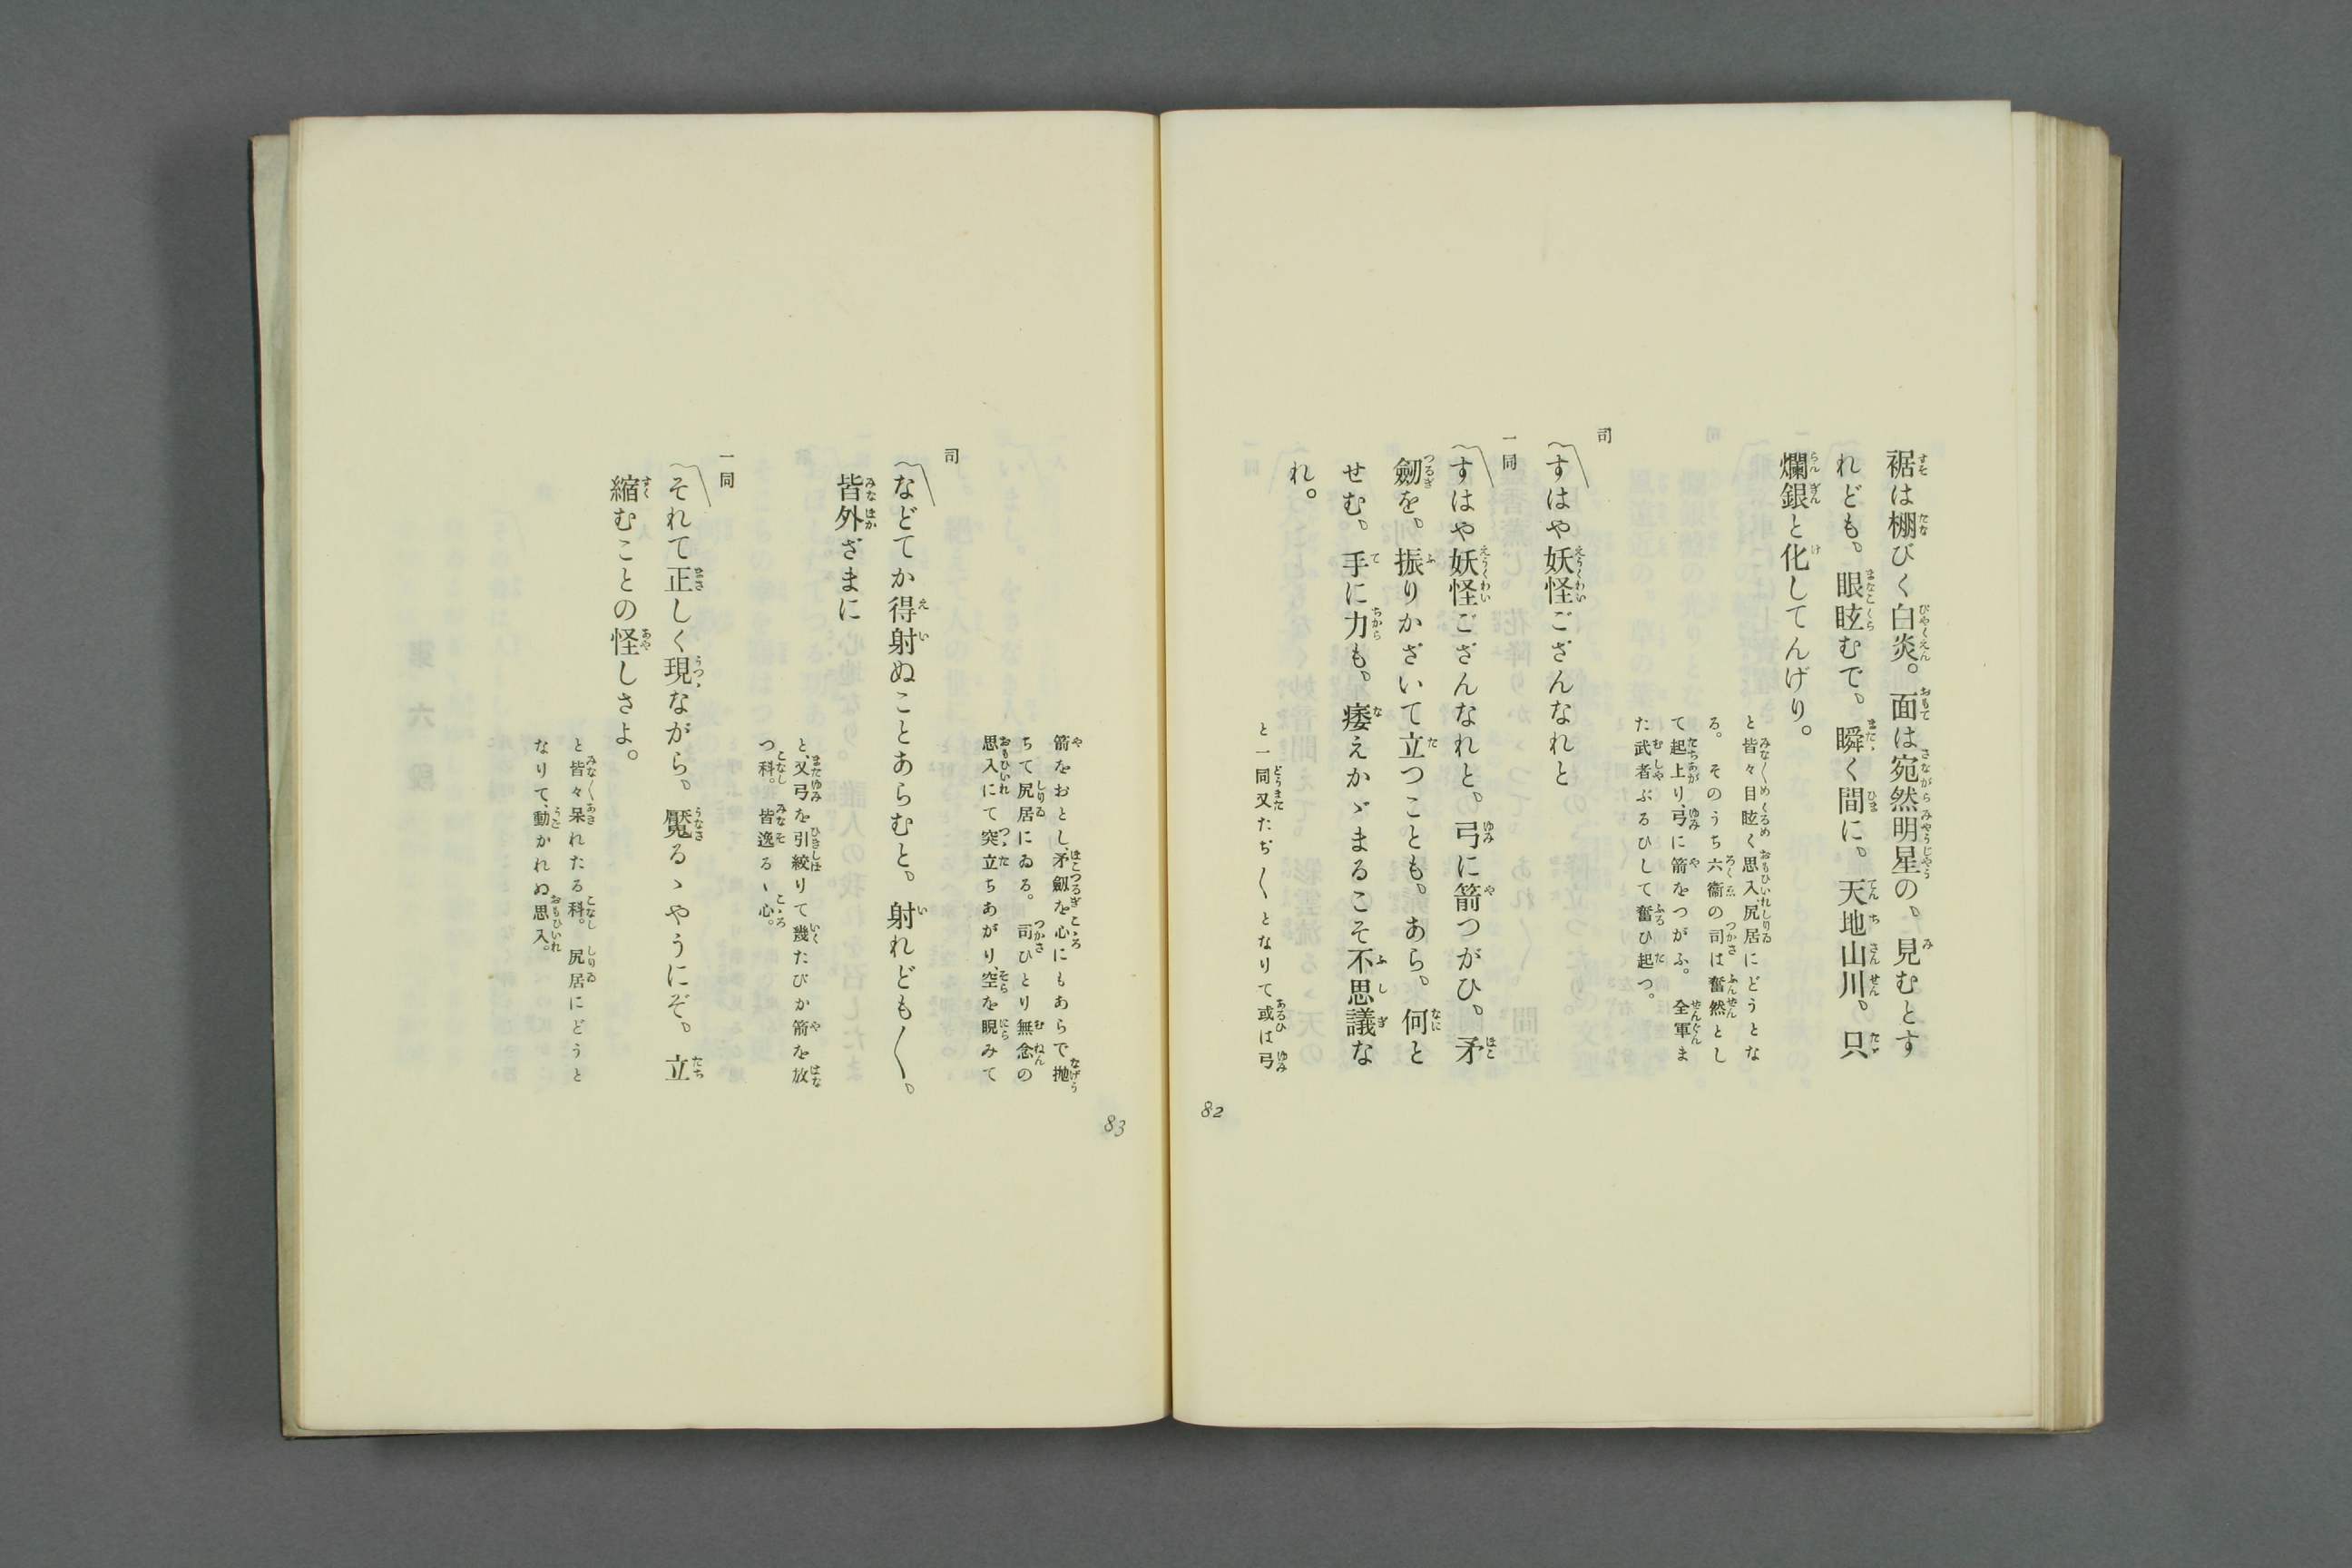 裾は棚びく白炎。面は宛然明星の、見むとす
れども、眼眩むで、瞬く間に、天地山川、只
爛銀と化してんげり。
と皆々目眩く思入、尻居にどうとな
る。そのうち六衞の司は奮然とし
て起上り、弓に箭をつがふ。全軍ま
た武者ぶるひして奮ひ起つ。
司
〽すはや妖怪ござんなれと
一同
〽すはや妖怪ござんなれと、弓に箭つがひ、矛
劒を、振りかざいて立つことも、あら、何と
せむ、手に力も、痿えかゞまるこそ不思議な
れ。
と一同又たぢ〳〵となりて或は弓
82
箭をおとし、矛劒を心にもあらで抛
ちて尻居にゐる。司ひとり無念の
思入にて突立ちあがり、空を睨みて
司
〽などてか得射ぬことあらむと、射れども〳〵、
皆外ざまに
と、又弓を引絞りて幾たびか箭を放
つ科。皆逸るゝ心。
一同
〽それて正しく現ながら、魘るゝやうにぞ、立
縮むことの怪しさよ。
と皆々呆れたる科。尻居にどうと
なりて、動かれぬ思入。
83